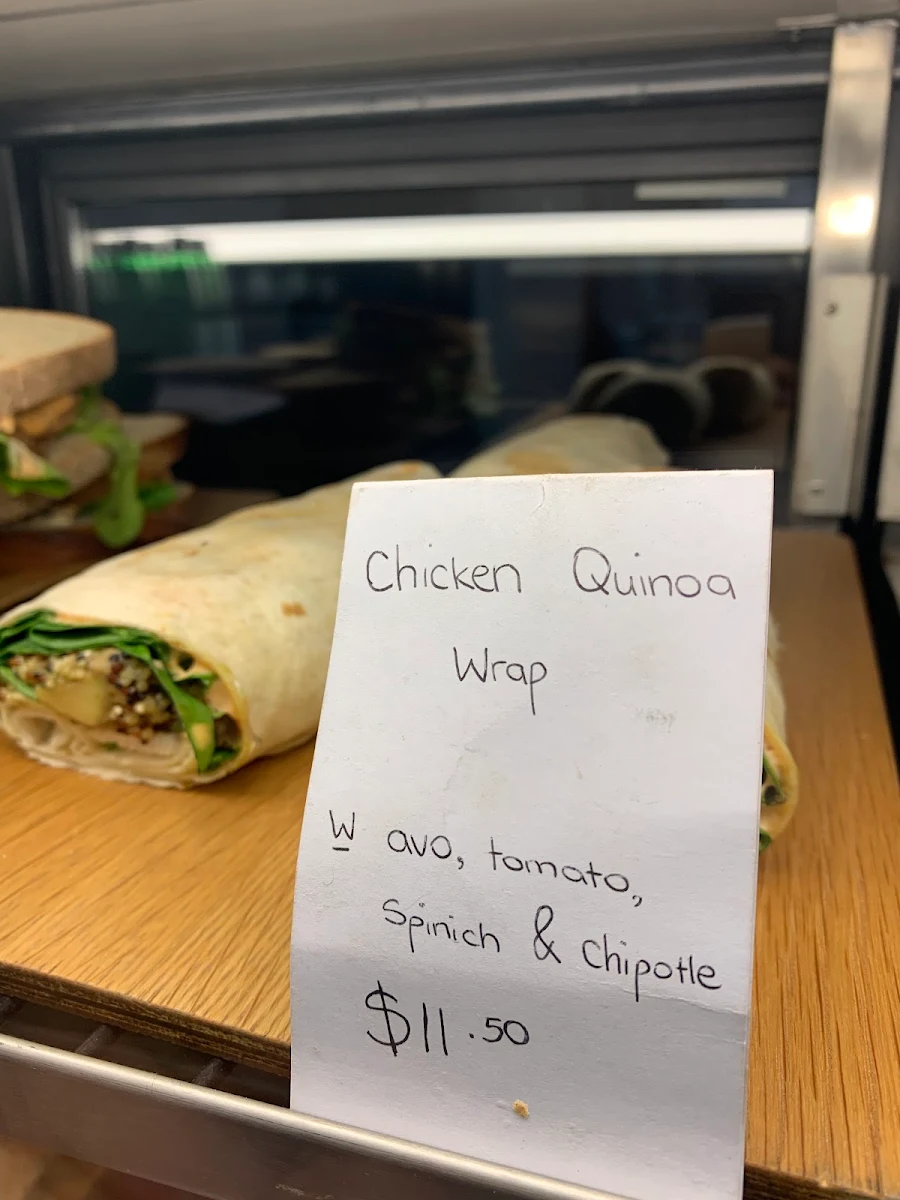 Chicken Quinoa
Wrap
W avo, tomato,
Spinich & Chipotle
$11.50